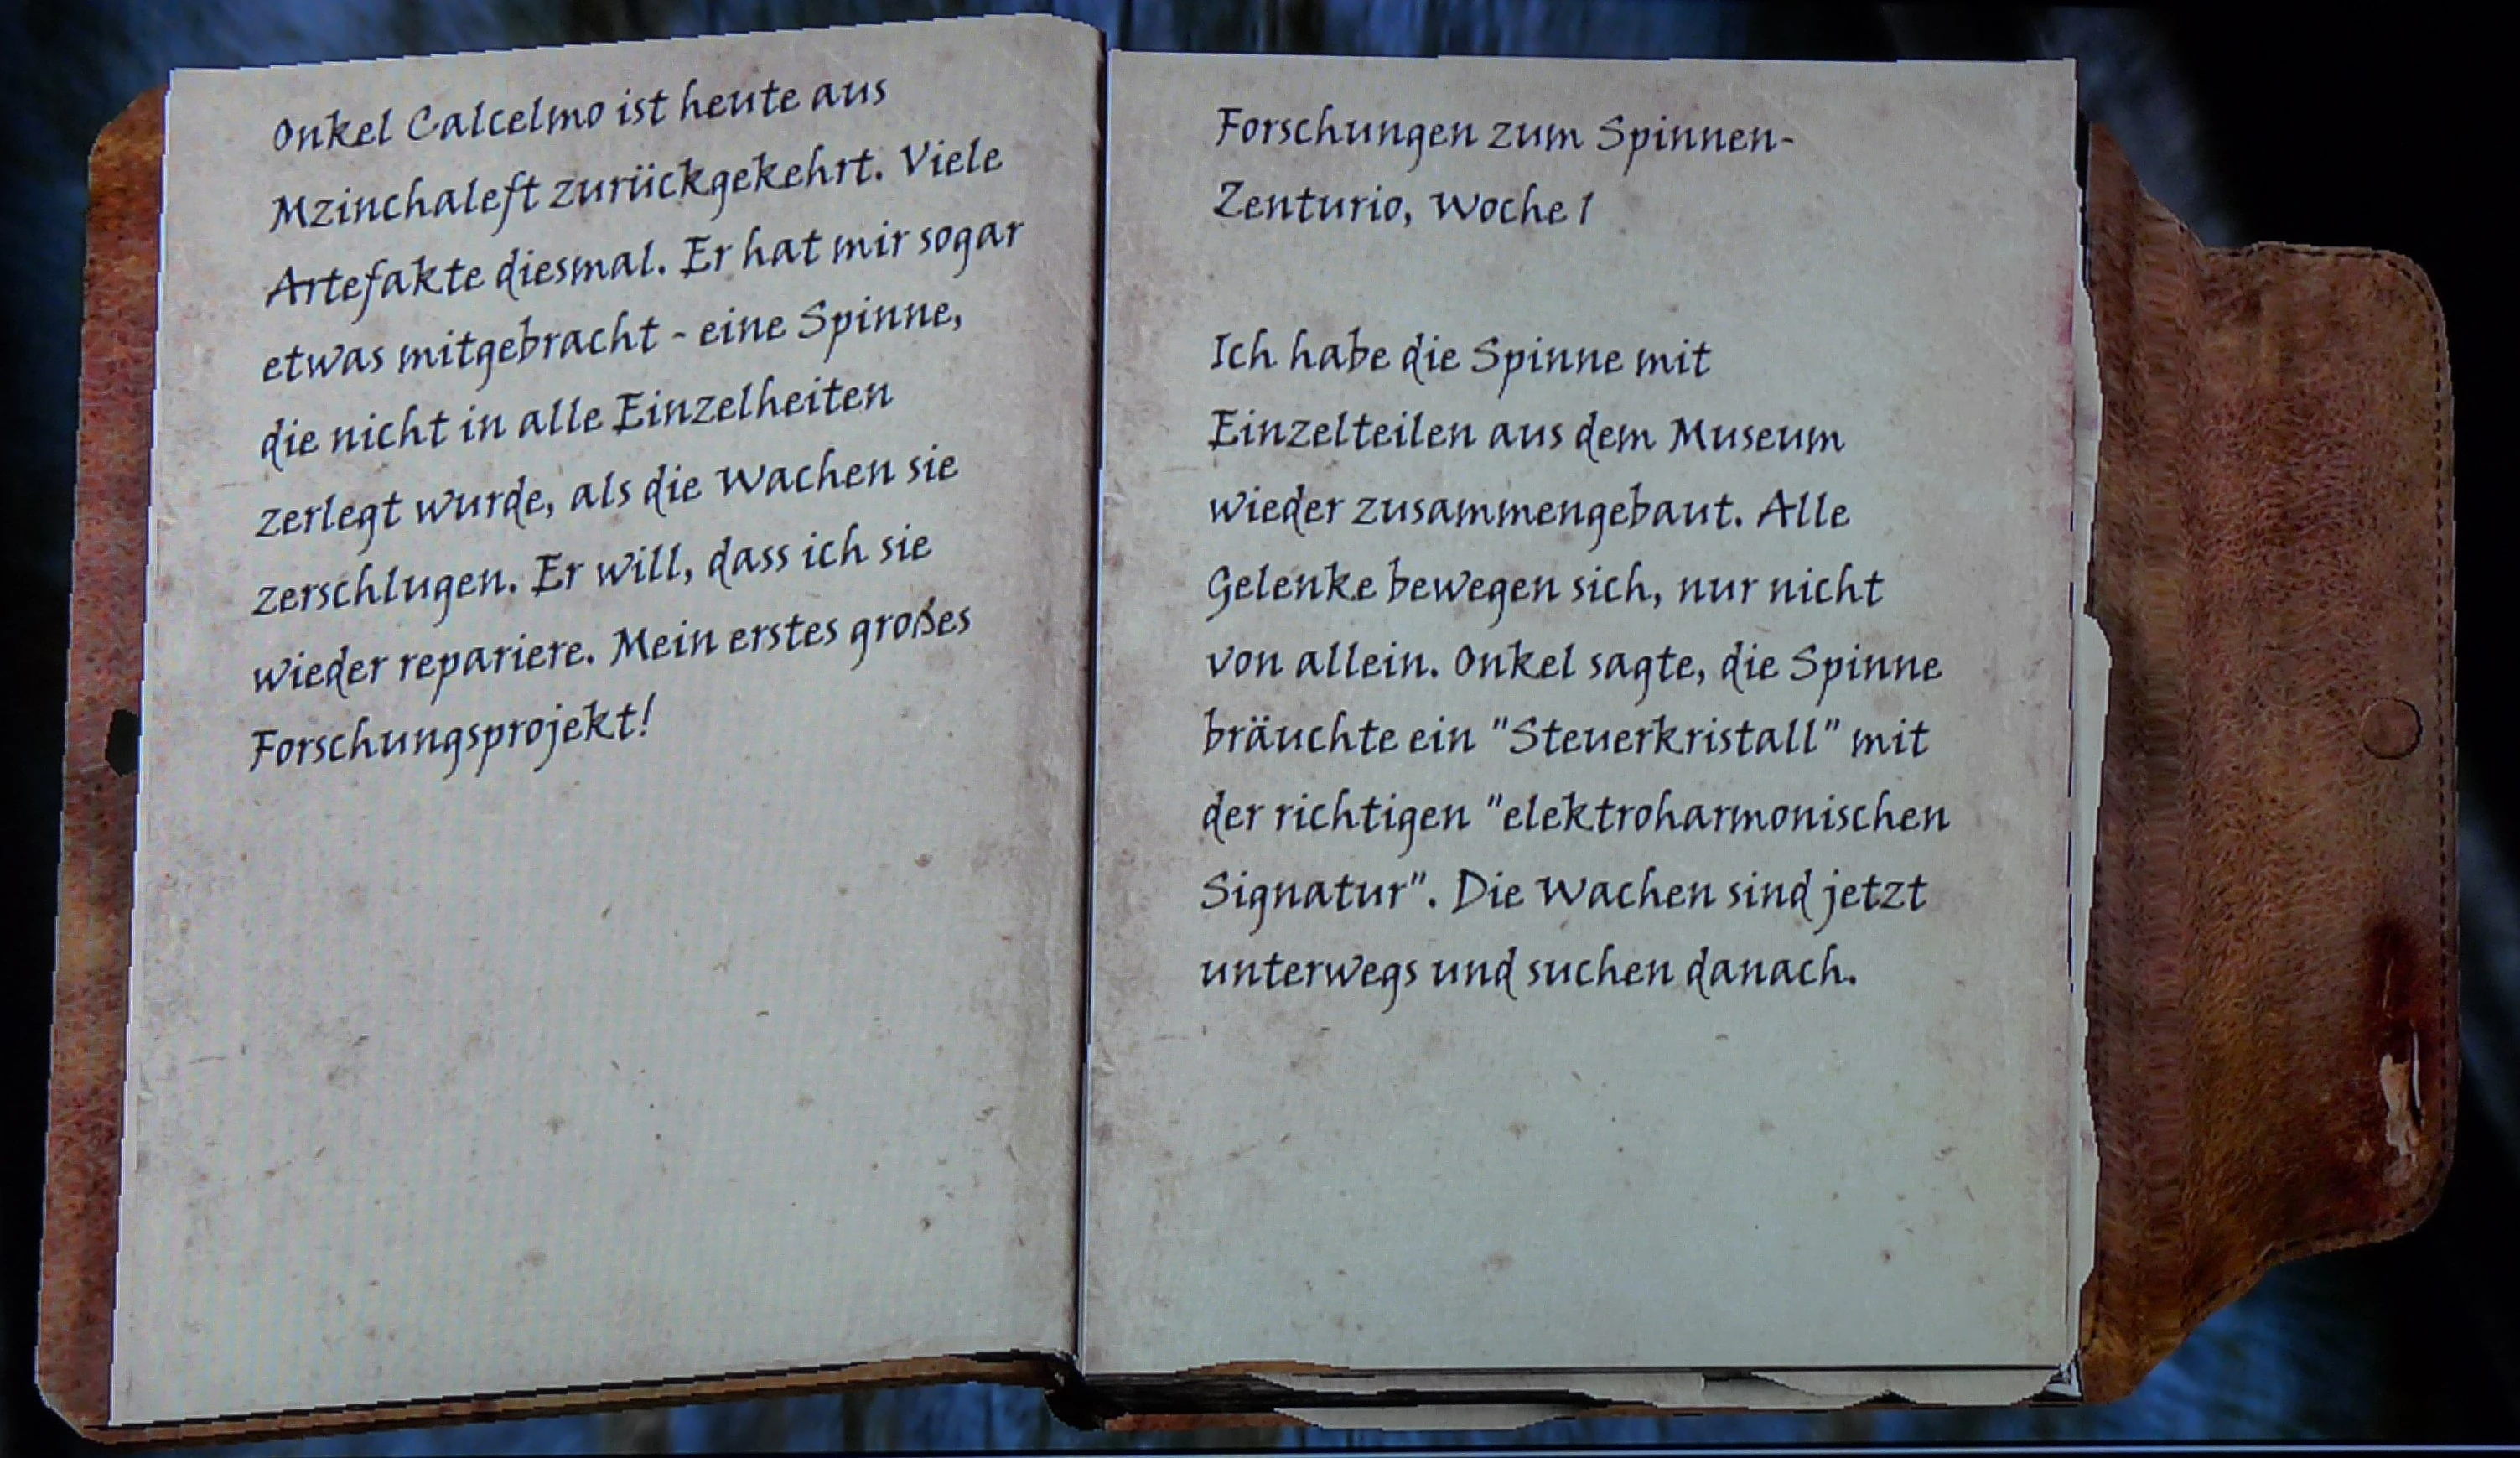 Onkel Calcelmo ist heute aus
Mzinchaleft zurückgekehrt. Viele
Artefakte diesmal. Er hat mir sogar
etwas mitgebracht - eine Spinne,
die nicht in alle Einzelheiten
zerlegt wurde, als die Wachen sie
zerschlugen. Er will, dass ich sie
wieder repariere. Mein erstes großes
Forschungsprojekt!
Forschungen zum Spinnen-
Zenturio, Woche 1
Ich habe die Spinne mit
Einzelteilen aus dem Museum
wieder zusammengebaut. Alle
Gelenke bewegen sich, nur nicht
von allein. Onkel sagte, die Spinne
bräuchte ein "Steuerkristall" mit
der richtigen "elektroharmonischen
Signatur". Die Wachen sind jetzt
unterwegs und suchen danach.